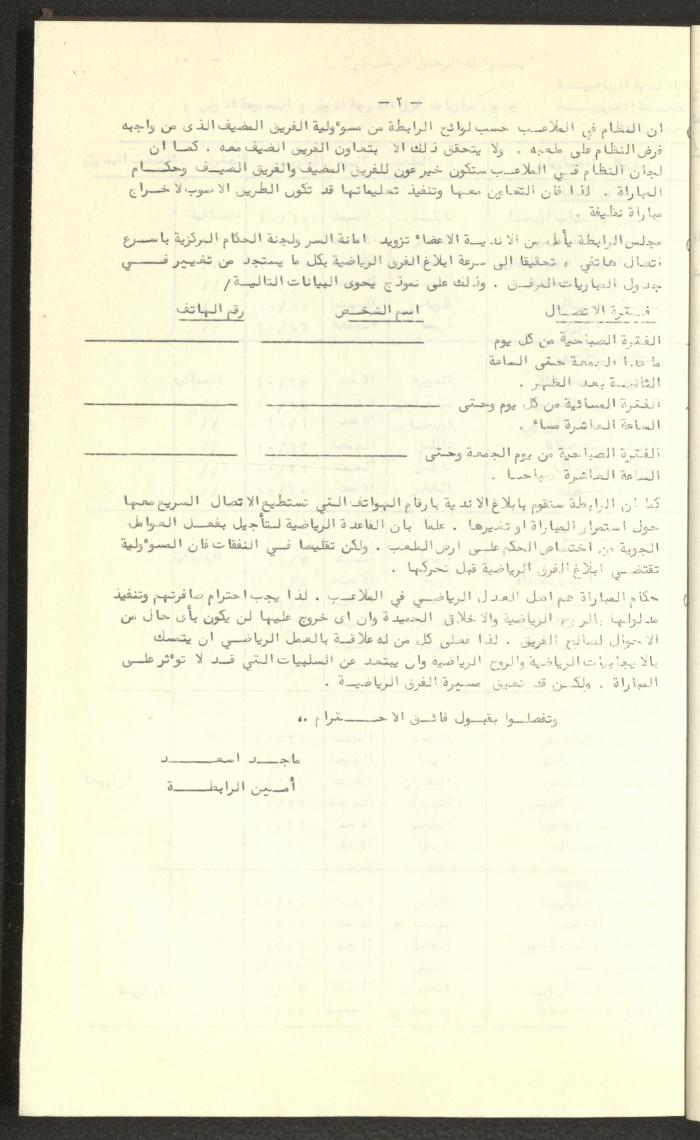 - ٢ -
ان النظام في الملاعب حسب لوائح الرابطة من مسوءولية الفريق المضيف الذى من واجبه
فرض النظام على ملعبه . ولا يتحقق ذلك الا بتعاون الفريق الضيف معه . كما ان
لجان النظام في الملاعب ستكون خير عون للفريق المضيف والفريق الضيف وحكام
المباراة . لذا فان التعاون معها وتنفيذ تعليماتها قد تكون الطريق الاصوب لاخراج
مباراة نظيفة
مجلس الرابطة يأمل من الاندية الاعضاء تزويد امانة السر ولجنة الحكام المركزية باسرع
اتصال هاتفي ، تحقيقا الى سرعة ابلاغ الفرق الرياضية بكل ما يستجد من تغيير في
جدول المباريات المرفق . وذلك على نموذج يحوى البيانات التالية /
فترة الاتصال اسم الشخص رقم الهاتف
الفترة الصباحية من كل يوم
ما عدا الجمعة حتى الساعة
الثانية بعد الظهر .
الفترة المسائية من كل يوم وحتى
الساعة العاشرة مساء .
الفترة الصباحية من يوم الجمعة وحتى
الساعة العاشرة صباحا .
كما ان الرابطة ستقوم بابلاغ الاندية بارقام الهواتف التي تستطيع الاتصال السريع معها
حول استمرار المباراة او تغيرها . علما بان القاعدة الرياضية لتأجيل بفعل العوامل
الجوية من اختصاص الحكم على ارض الملعب . ولكن تقليصا في النفقات فان المسوءولية
تقتضي ابلاغ الفرق الرياضية قبل تحركها .
حكام المباراة هم اهل العدل الرياضي في الملاعب . لذا يجب احترام صافرتهم وتنفيذ
مدلولها بالروح الرياضية والاخلاق الحميدة وان اى خروج عليها لن يكون بأى حال من
الاحوال لصالح الفريق . لذا فعلى كل من له علاقة بالعمل الرياضي ان يتمسك
بالايجابيات الرياضية والروح الرياضية وان يبتعد عن السلبيات التي قد لا توءثر على
المباراة . ولكن قد تعيق مسيرة الفرق الرياضية .
وتفضلوا بقبول فائق الاحترام ،،
ماجد اسعد
أمين الرابطة